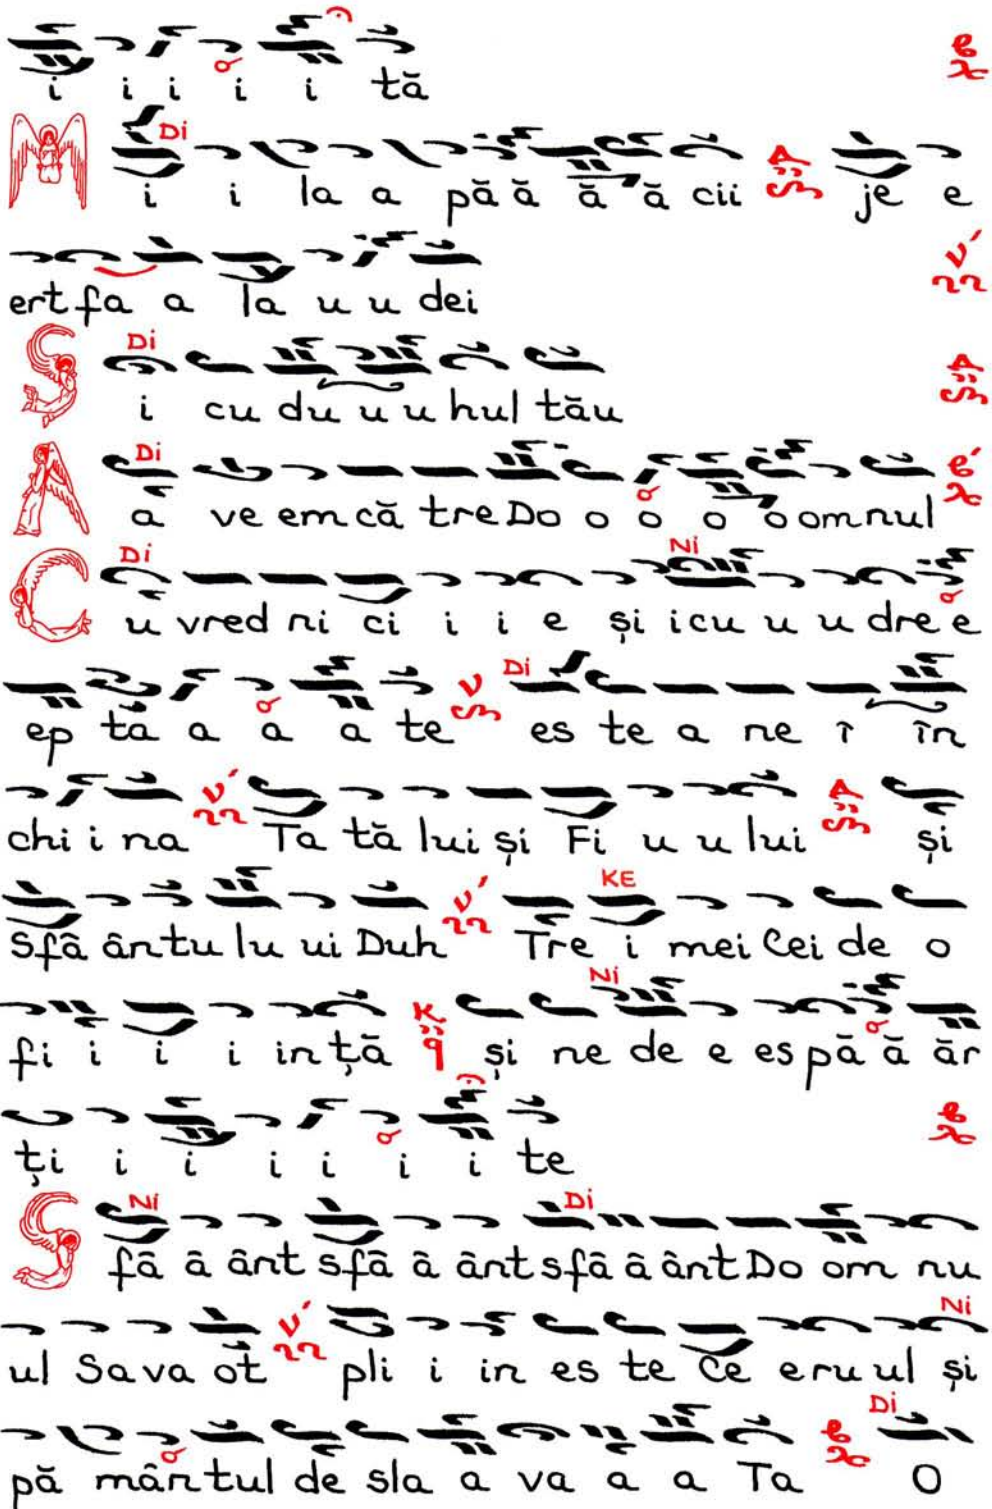 i i i i i tă
M Di i i la a pă ă ă ă cii je e
ert fa a la u u dei
S Di i cu du u u hul tău
A Di a ve em că tre Do o o o o omnul
C Di Ni u vred ni ci i i e și i cu u u dre e
ep ta a a a te Di es te a ne î în
chi i na Ta tă lui și Fi u u lui și
Sfâ ântu lu ui Duh KE Tre i mei Cei de o
fi i i i in ță Ni și ne de e es pă ă ăr
ți i i i i i i te
S Ni Di fâ â ânt sfâ â ânt sfâ â ânt Do om nu
ul Sa va ot pli i in es te Ce eru ul Ni și
pă mân tul de sla a va a a Ta Di O